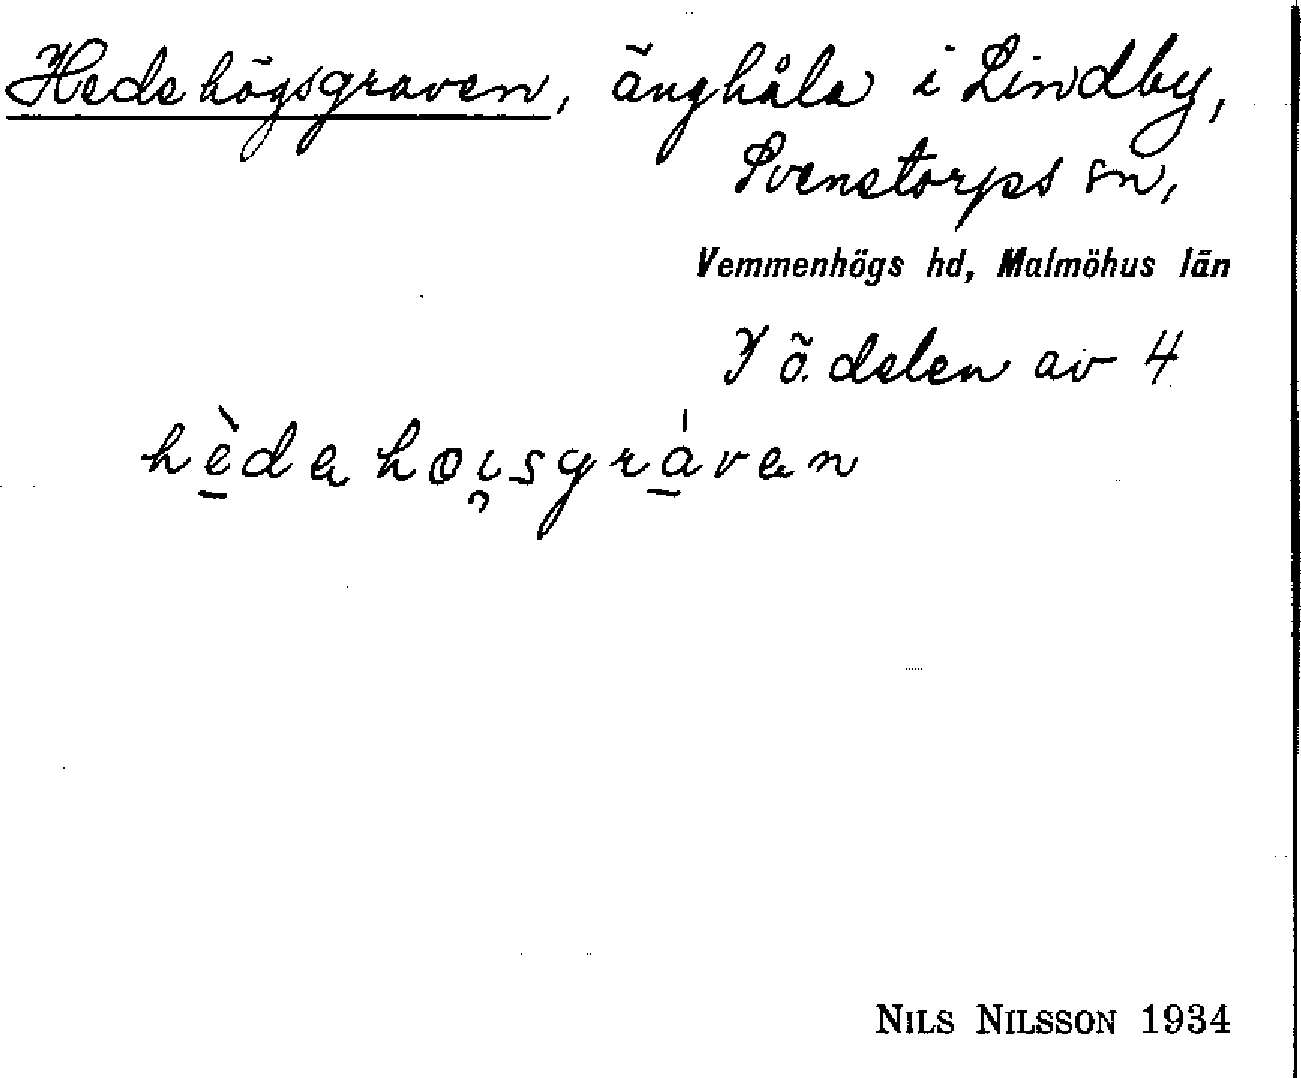 Hedehögsgraven, änghåla i Lindby,
Svenstorps sn,
Vemmenhögs hd, Malmöhus län
I ö. delen av 4
hèdahoi̯sgráven
NILS NILSSON 1934